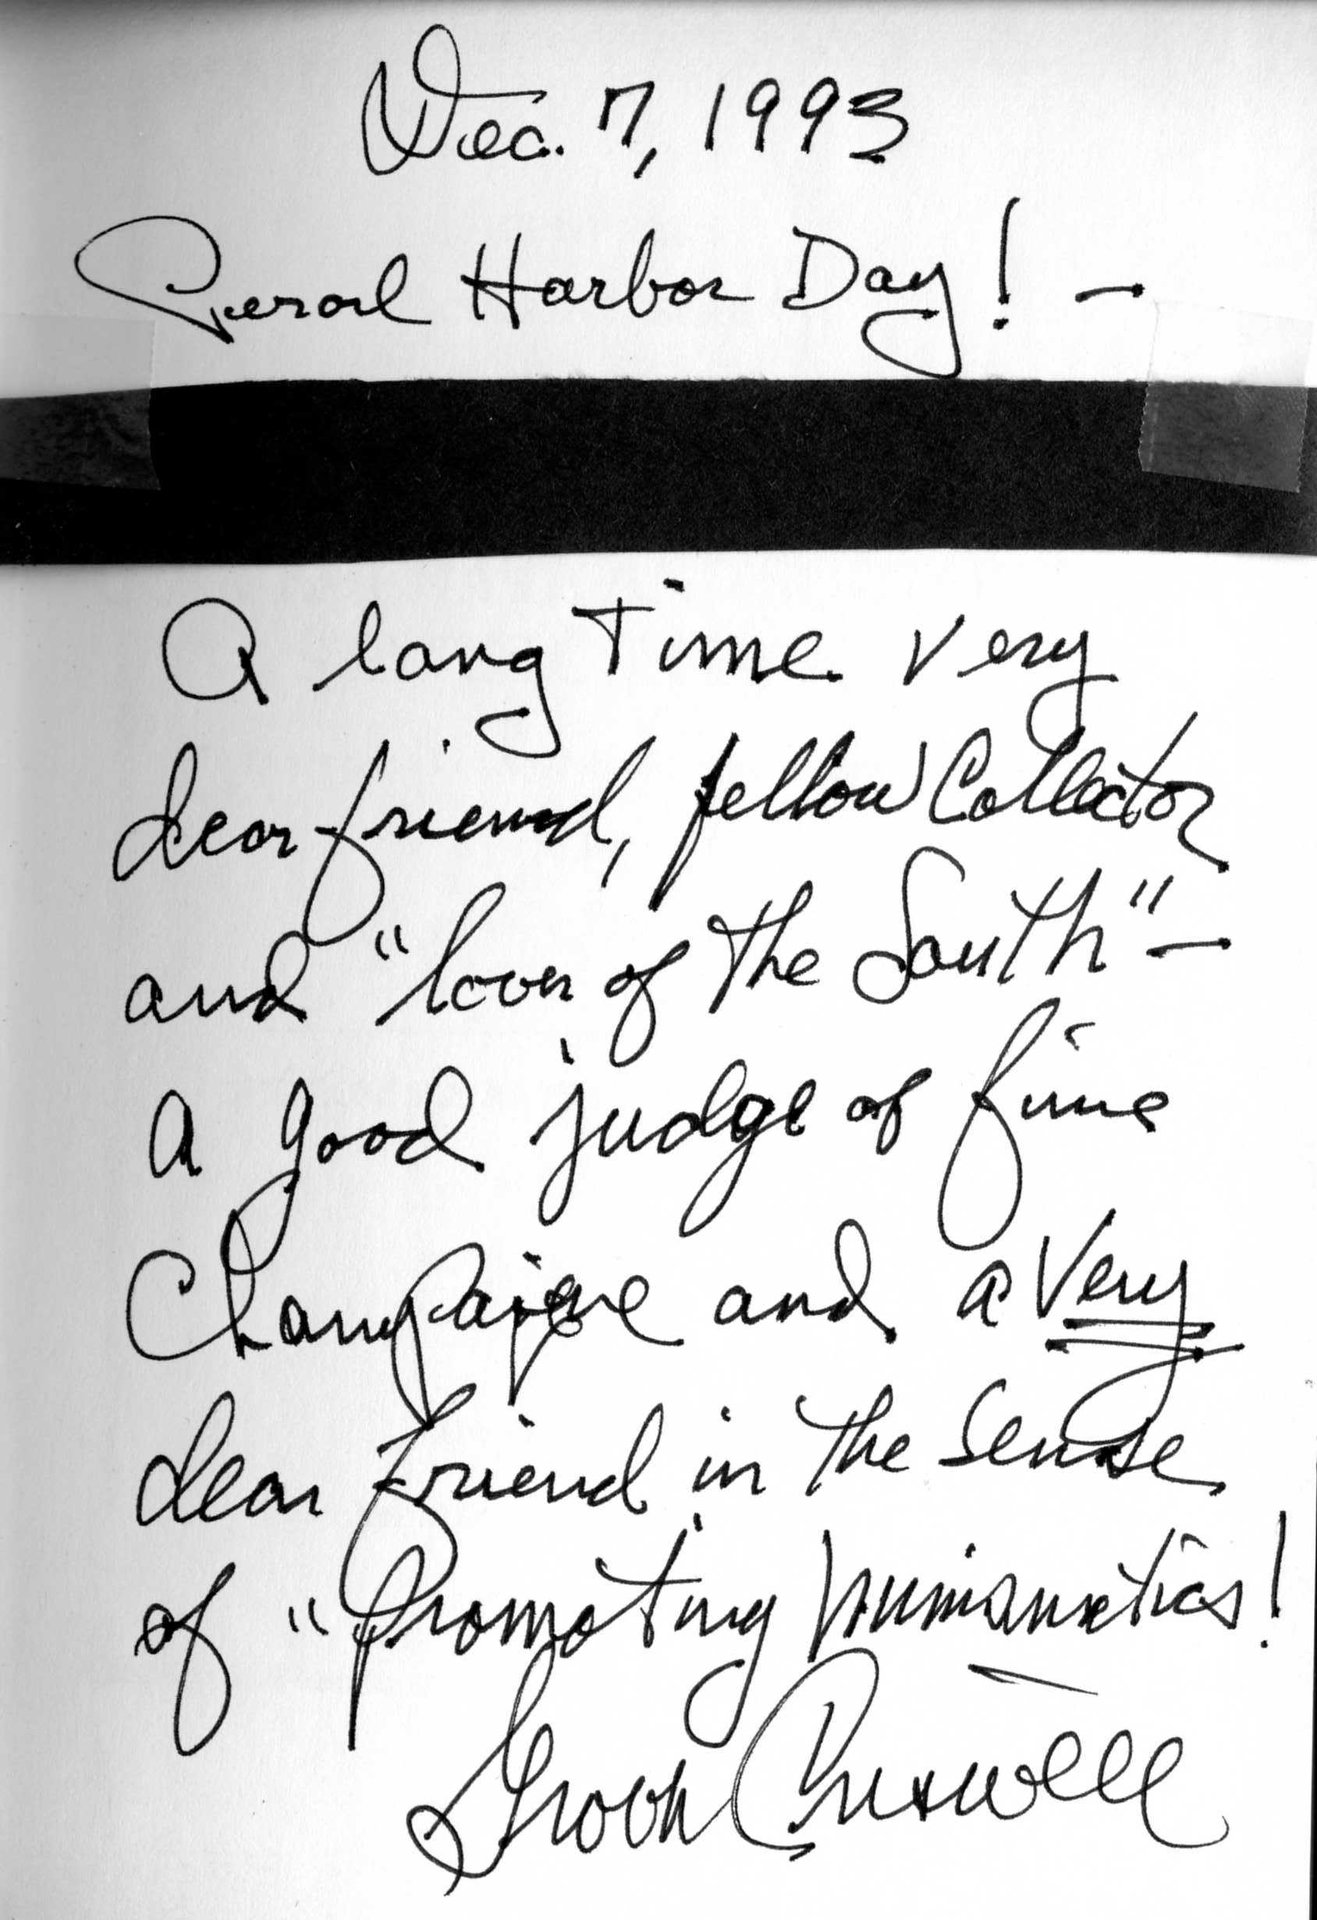 Dec. 7, 1993
Perarl Harbor Day! —
A long Time very
dear friend, fellow Collector
and "lover of the South" —
A good judge of fine
Champaigne and a Very
dear friend in the sense
of "Promoting Numismatics!
Grover Criswell